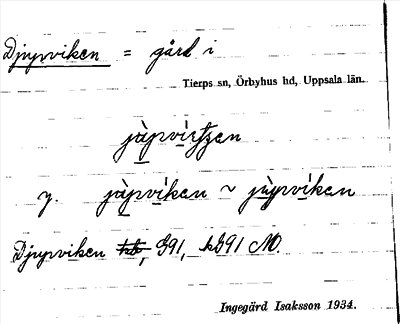 Djupviken = gård i
Tierps sn, Örbyhus hd, Uppsala län.
jùpvìrʃen
y. jùpvìken ~ jùpvìken
Djupviken G91, kb91 AO.
Ingegärd Isaksson 1934.